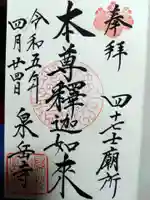 奉拝
四十七士廟所
本尊釋迦如来
令和五年
四月廿四日
泉岳寺